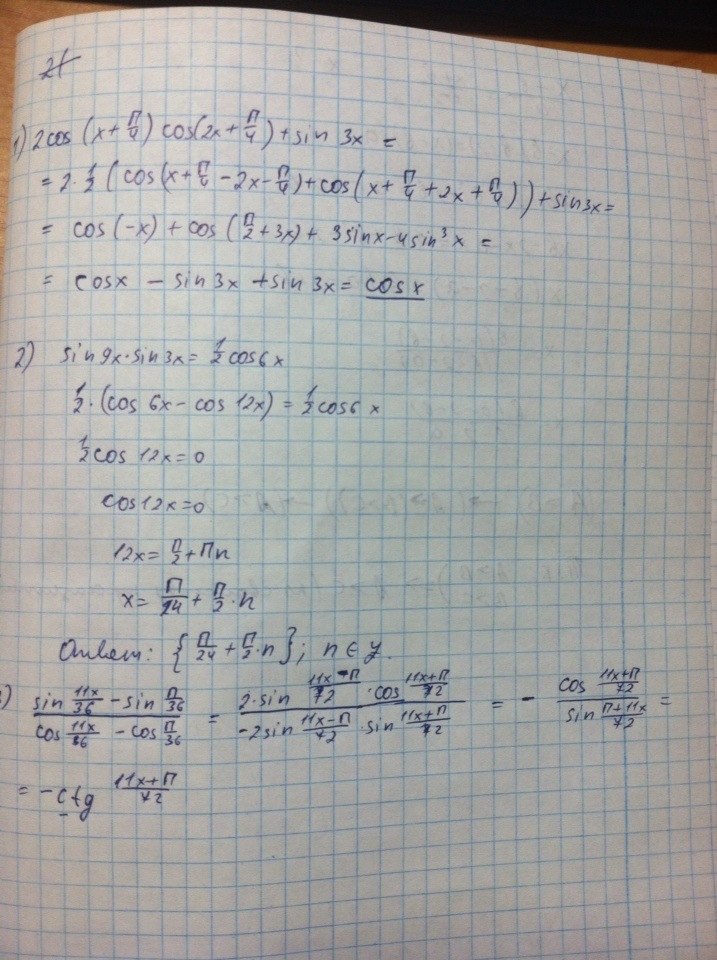 21
1) 2cos (x+П/4) cos(2x+П/4)+sin 3x =
= 2·1/2 (cos(x+П/4 -2x-П/4)+cos(x+П/4+2x+П/4))+sin3x=
= cos(-x) + cos(П/2+3x)+ 3sinx-4sin³x =
= cosx - sin3x +sin3x= cosx
2) sin9x·sin3x= 1/2cos6x
1/2·(cos 6x- cos 12x) = 1/2cos6x
1/2cos 12x=0
cos12x=0
12x= П/2+Пn
x= П/24+ П/2·n
Ответ: {П/24+П/2·n}; n∈Z.
) (sin 11x/36 - sin П/36)/(cos 11x/36 - cos П/36) = (2·sin (11x-П)/72 · cos (11x+П)/72)/(-2sin (11x-П)/72 · sin (11x+П)/72) = - (cos (11x+П)/72)/(sin (П+11x)/72) =
= -ctg (11x+П)/72